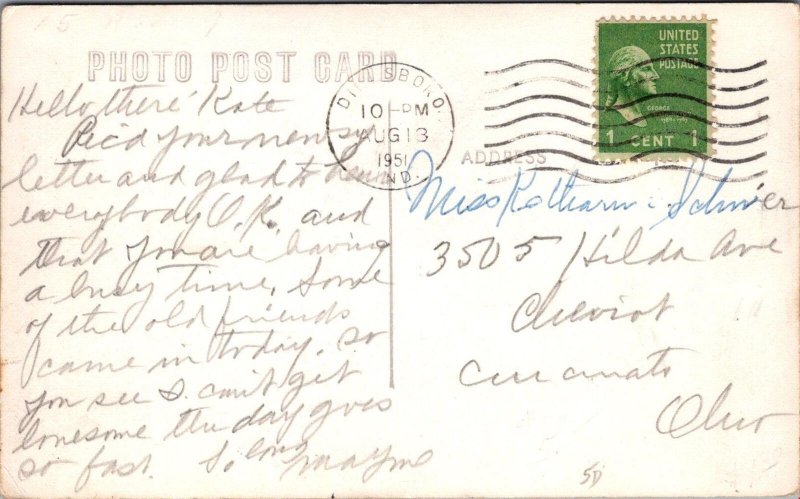 PHOTO POST CARD
Hello, there' Kate
Rec'd your newsy
letter and glad to hear
everybody O.K. and
that you are having
a busy time. Some
of the old friends
came in today. so
you see I can't get
lonesome the day goes
so fast. So long Mayme
DILLSBORO.
10-PM
AUG 13
1951
IND.
UNITED
STATES
POSTAGE
GEORGE
1 CENT 1
ADDRESS
Miss Katharine Schwier
3505 Hilda Ave
Cheviot
Cincinnati
Ohio
50